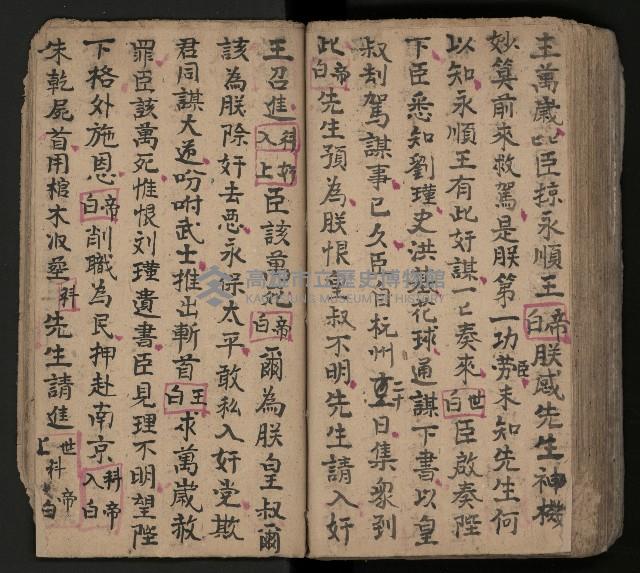 主萬歲臣掠永順王帝白朕感先生神機
妙算前來救駕是朕第一功劳臣未知先生何
以知永順王有此奸謀一一奏來世白臣啟奏陛
下臣悉知劉瑾史洪花球通謀下書以皇
叔刦駕謀事已久臣自杭州二十日集衆到
此帝白先生預為朕恨皇叔不明先生請入奸
王召進科入奸上臣該萬死帝白爾為朕皇叔爾
該為朕除奸去惡永保太平敢私入奸党欺
君同謀大逆吩咐武士推出斬首王白求萬歲赦
罪臣該萬死惟恨刘瑾遺書臣見理不明望陛
下格外施恩帝白削職為民押赴南京科入帝白
朱乾屍首用棺木收塟科先生請進世上科帝白
高雄市立歷史博物館
KAOHSIUNG MUSEUM OF HISTORY